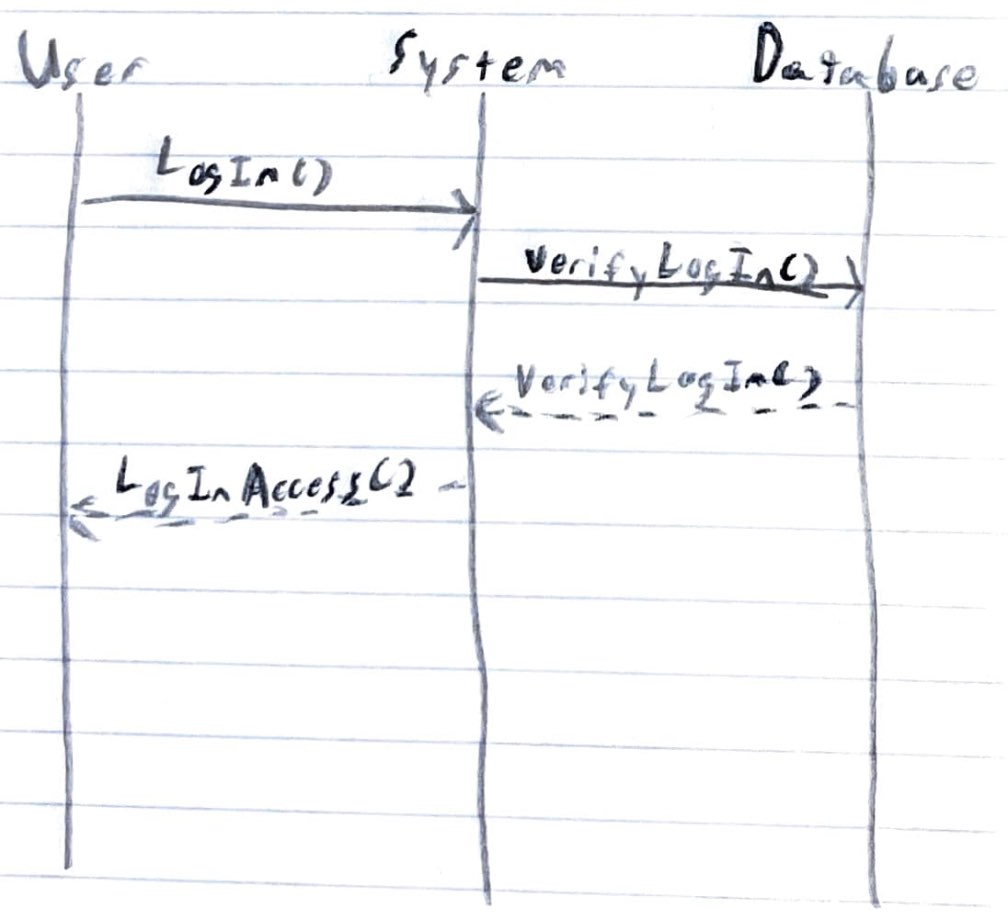 User System Database
LogIn()
VerifyLogIn()
VerifyLogIn()
LogInAccess()